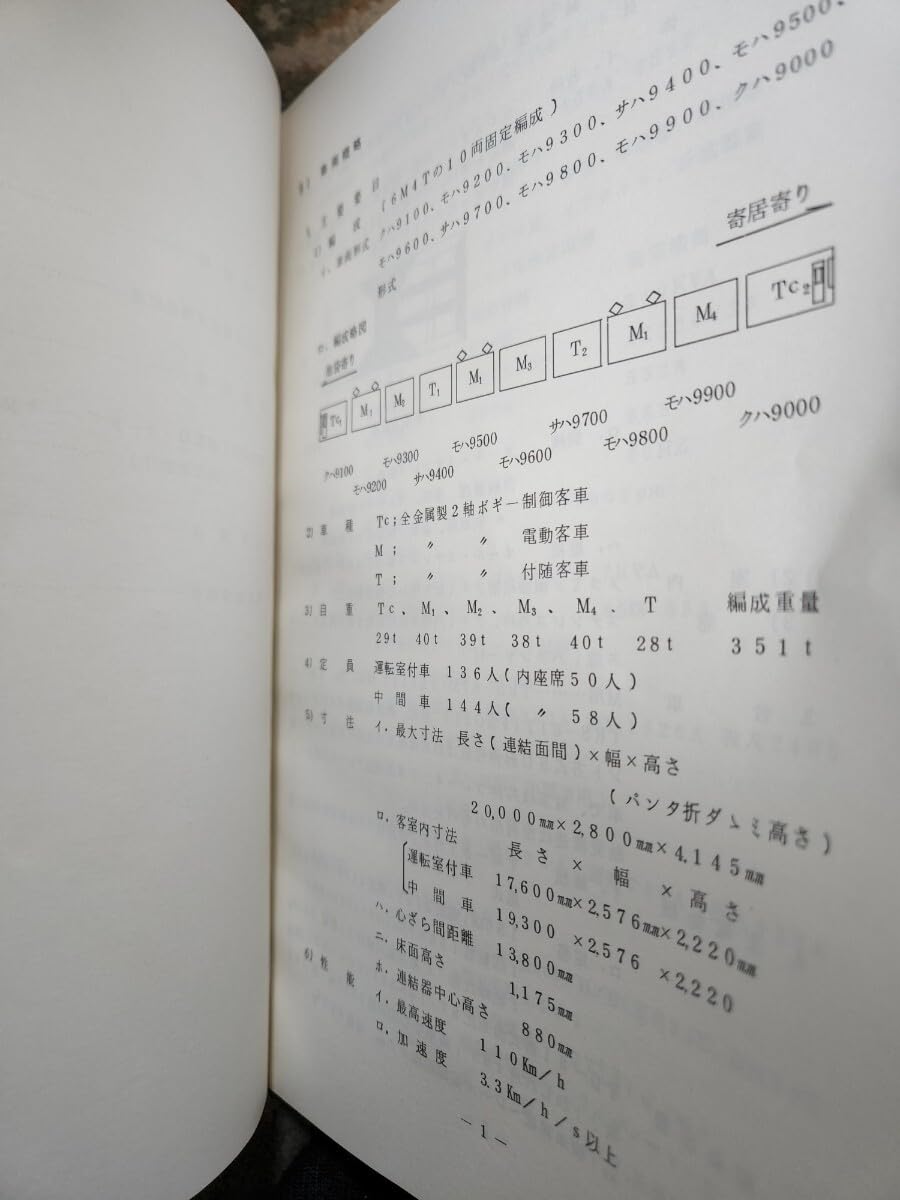 §1 車両概略
1. 主要要目
1) 編成 (6M4Tの10両固定編成)
イ. 車両形式 クハ9100、モハ9200、モハ9300、サハ9400、モハ9500、
モハ9600、サハ9700、モハ9800、モハ9900、クハ9000
形式
ロ. 編成略図
池袋寄り 寄居寄り
Tc₁ M₁ M₂ T₁ M₁ M₃ T₂ M₁ M₄ Tc₂
クハ9100 モハ9300 モハ9500 サハ9700 モハ9900
モハ9200 サハ9400 モハ9600 モハ9800 クハ9000
2) 車種 Tc;全金属製2軸ボギー制御客車
M; 〃 〃 電動客車
T; 〃 〃 付随客車
3) 自重 Tc、M₁、M₂、M₃、M₄、T 編成重量
29t 40t 39t 38t 40t 28t 351t
4) 定員 運転室付車 136人(内座席50人)
中間車 144人(〃 58人)
5) 寸法 イ. 最大寸法 長さ(連結面間)×幅×高さ
(パンタ折ダヽミ高さ)
20,000㎜×2,800㎜×4,145㎜
ロ. 客室内寸法 長さ × 幅 × 高さ
運転室付車 17,600㎜×2,576㎜×2,220㎜
中間車 19,300 ×2,576 ×2,220
ハ. 心ざら間距離 13,800㎜
ニ. 床面高さ 1,175㎜
ホ. 連結器中心高さ 880㎜
6) 性能 イ. 最高速度 110Km/h
ロ. 加速度 3.3Km/h/s以上
－1－